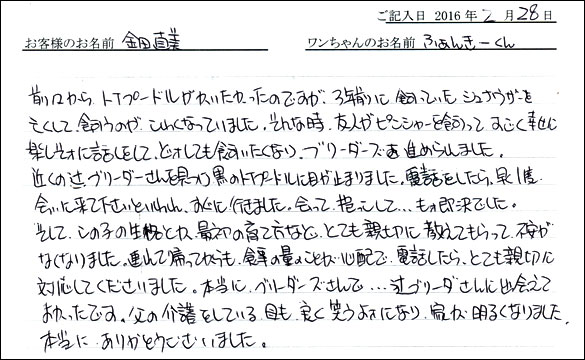 ご記入日 2016 年 2 月 28 日
お客様のお名前 金田直美 ワンちゃんのお名前 ふぁんきーくん
前々から、トイプードルがかいたかったのですが、3年前に飼っていたシュナウザーを
亡くして飼うのが、こわくなっていました。そんな時、友人がピンシャーを飼って、すごく幸せに
楽しそうに話しをして、どうしても飼いたくなり、ブリーダーズを進められました。
近くの辻ブリーダーさんを見つけ黒のトイプードルに目が止まりました。電話をしたら、早い
会いに来て下さいといわれ、すぐに行きました。会って、抱っこして…もう即決でした。
そして、この子の生格とか、最初の育て方など、とても親切に教えてもらって、不安が
なくなりました。連れて帰ってからも、食事の量のことが心配で、電話したら、とても親切に
対応してくださいました。本当に、ブリーダーズさんで…辻ブリーダさんに出会えて
よかったです。父の介護をしている母も、良く笑うようになり、家が明るくなりました。
本当に ありがとうございました。